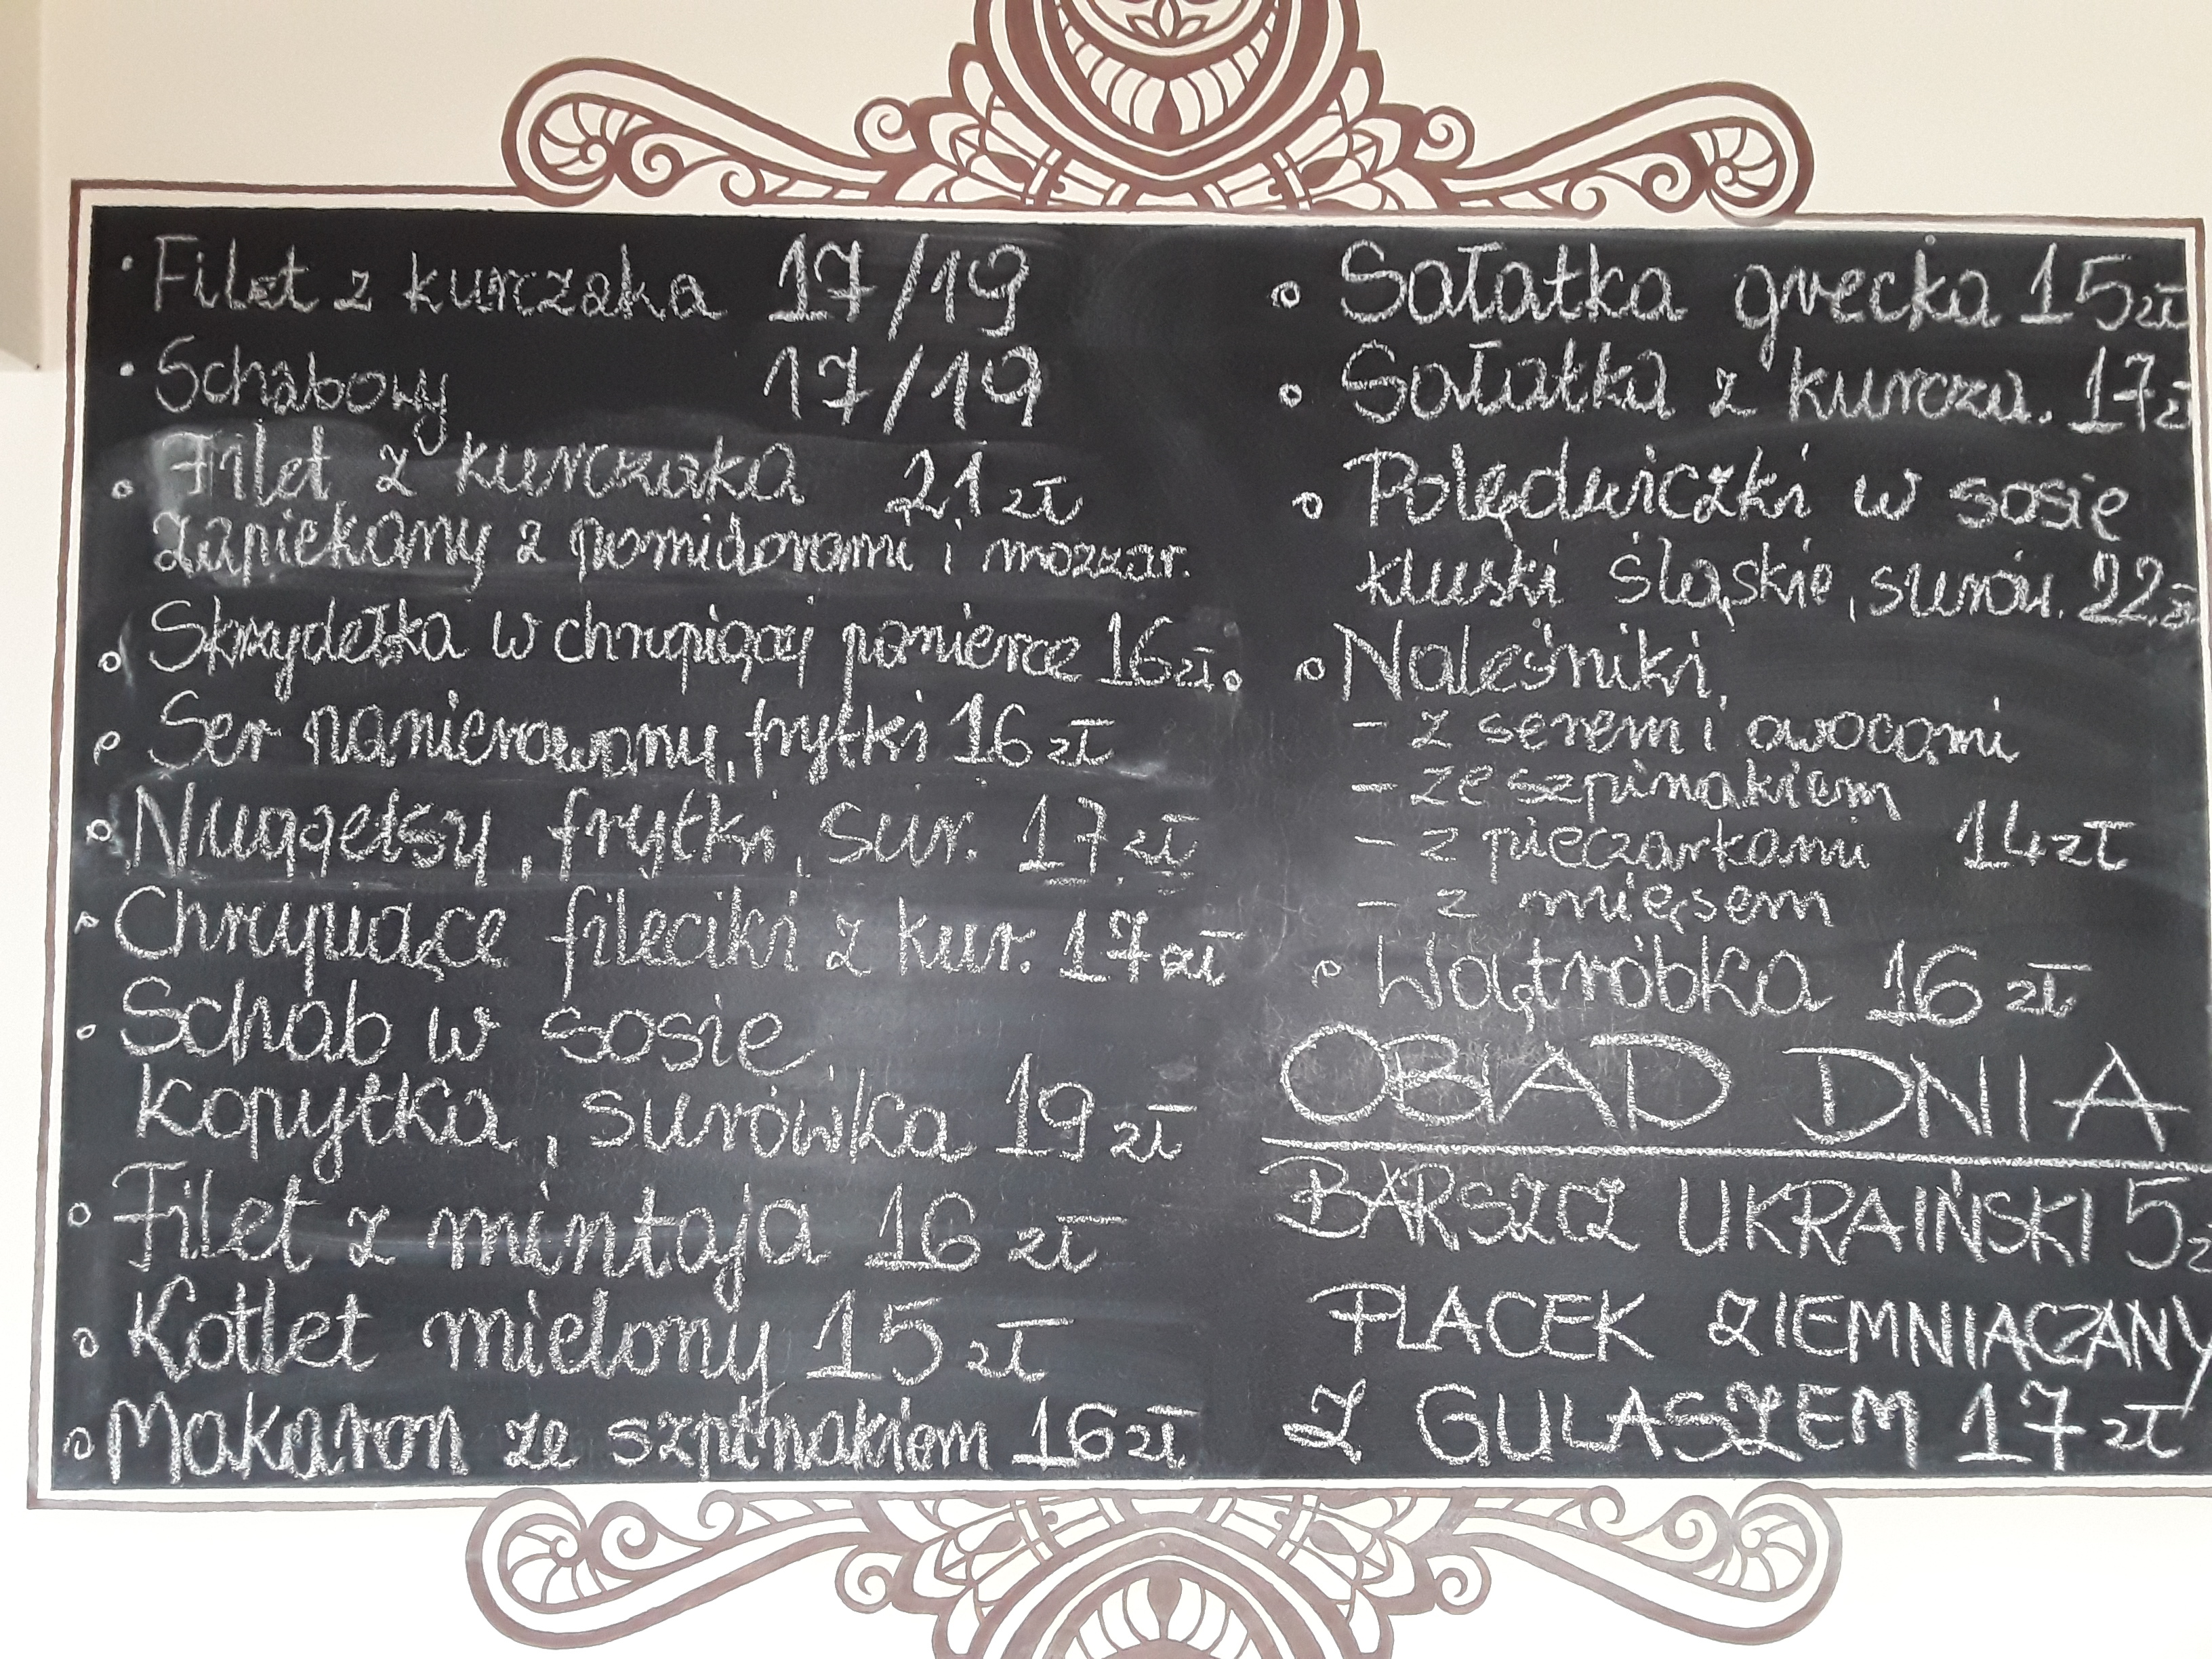 Filet z kurczaka 17/19
Schabowy 17/19
Filet z kurczaka 21 zł
zapiekany z pomidorami i mozzar.
Skrzydełka w chrupiącej panierce 16 zł
Ser panierowany, frytki 16 zł
Nuggetsy, frytki, sur. 17 zł
Chrupiące fileciki z kur. 17 zł
Schab w sosie
kopytka, surówka 19 zł
Filet z mintaja 16 zł
Kotlet mielony 15 zł
Makaron ze szpinakiem 16 zł
Sałatka grecka 15 zł
Sałatka z kurcza. 17 z
Polędwiczki w sosie
kluski śląskie, surów. 22 z
Naleśniki
- z serem i owocami
- ze szpinakiem
- z pieczarkami 14 zł
- z mięsem
Wątróbka 16 zł
OBIAD DNIA
BARSZCZ UKRAIŃSKI 5 z
PLACEK ZIEMNIACZANY
Z GULASZEM 17 zł